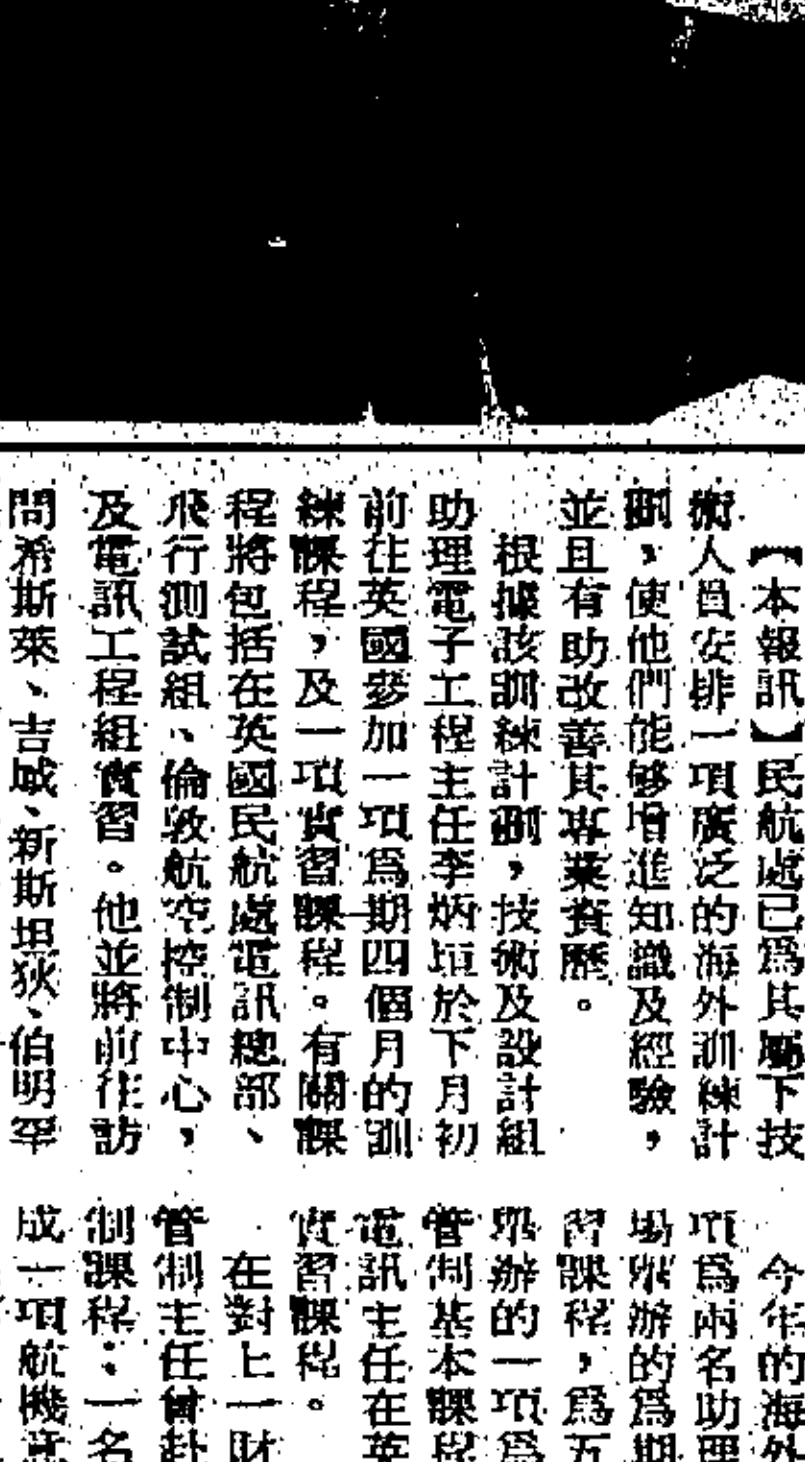 【本報訊】民航處已爲其屬下技
術人員安排一項廣泛的海外訓練計
劃，使他們能够增進知識及經驗，
並且有助改善其專業資歷。
根據該訓練計劃，技術及設計組
助理電子工程主任李炳垣於下月初
前往英國參加一項爲期四個月的訓
練課程，及一項實習課程。有關課
程將包括在英國民航處電訊總部、
飛行測試組、倫敦航空控制中心，
及電訊工程組實習。他並將前往訪
問希斯萊、吉城、新斯坦狄、伯明罕
今年的海外
項爲兩名助理
場舉辦的爲期
習課程，爲五
舉辦的一項爲
管制基本課程
電訊主任在英
實習課程。
在對上一財
管制主任曾赴
制課程：一名
成一項航機意